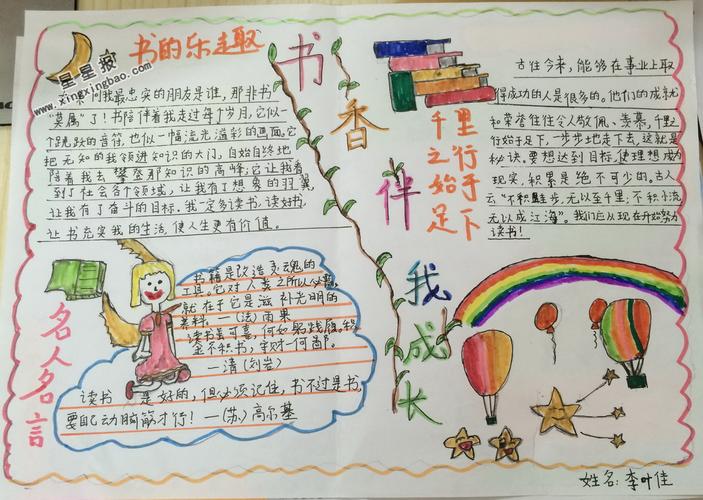 星星报
www.xingxingbao.com
书的乐趣
问我最忠实的朋友是谁，那非书
"莫属"了！书陪伴着我走过每个岁月，它似一
个跳跃的音符，也似一幅流光溢彩的画面。它
把无知的我领进知识的大门，自始自终地
陪着我去攀登那知识的高峰；它让我看
到了社会各个领域，让我有了想象的羽翼，
让我有了奋斗的目标。我一定多读书、读好书，
让书充实我的生活，使人生更有价值。
书香伴我成长
千里之行始于足下
古往今来，能够在事业上取
得成功的人是很多的。他们的成就
和荣誉往往令人敬佩、羡慕，千里之
行始于足下，一步步地走下去，这就是
秘诀。要想达到目标，使理想成为
现实，积累是绝不可少的。古人
云"不积跬步，无以至千里；不积小流
无以成江海"。我们应从现在开始努力
读书！
名人名言
书籍是改造灵魂的
工具。它对人类之所以必需，
就在于它是滋补光明的
养料。—（法）雨果
读书虽可喜，何如躬践履。积
金不积书，守财一何鄙。
—清（刘岩）
读书是好的，但必须记住，书不过是书，
要自己动脑筋才行！—（苏）高尔基
姓名：李叶佳